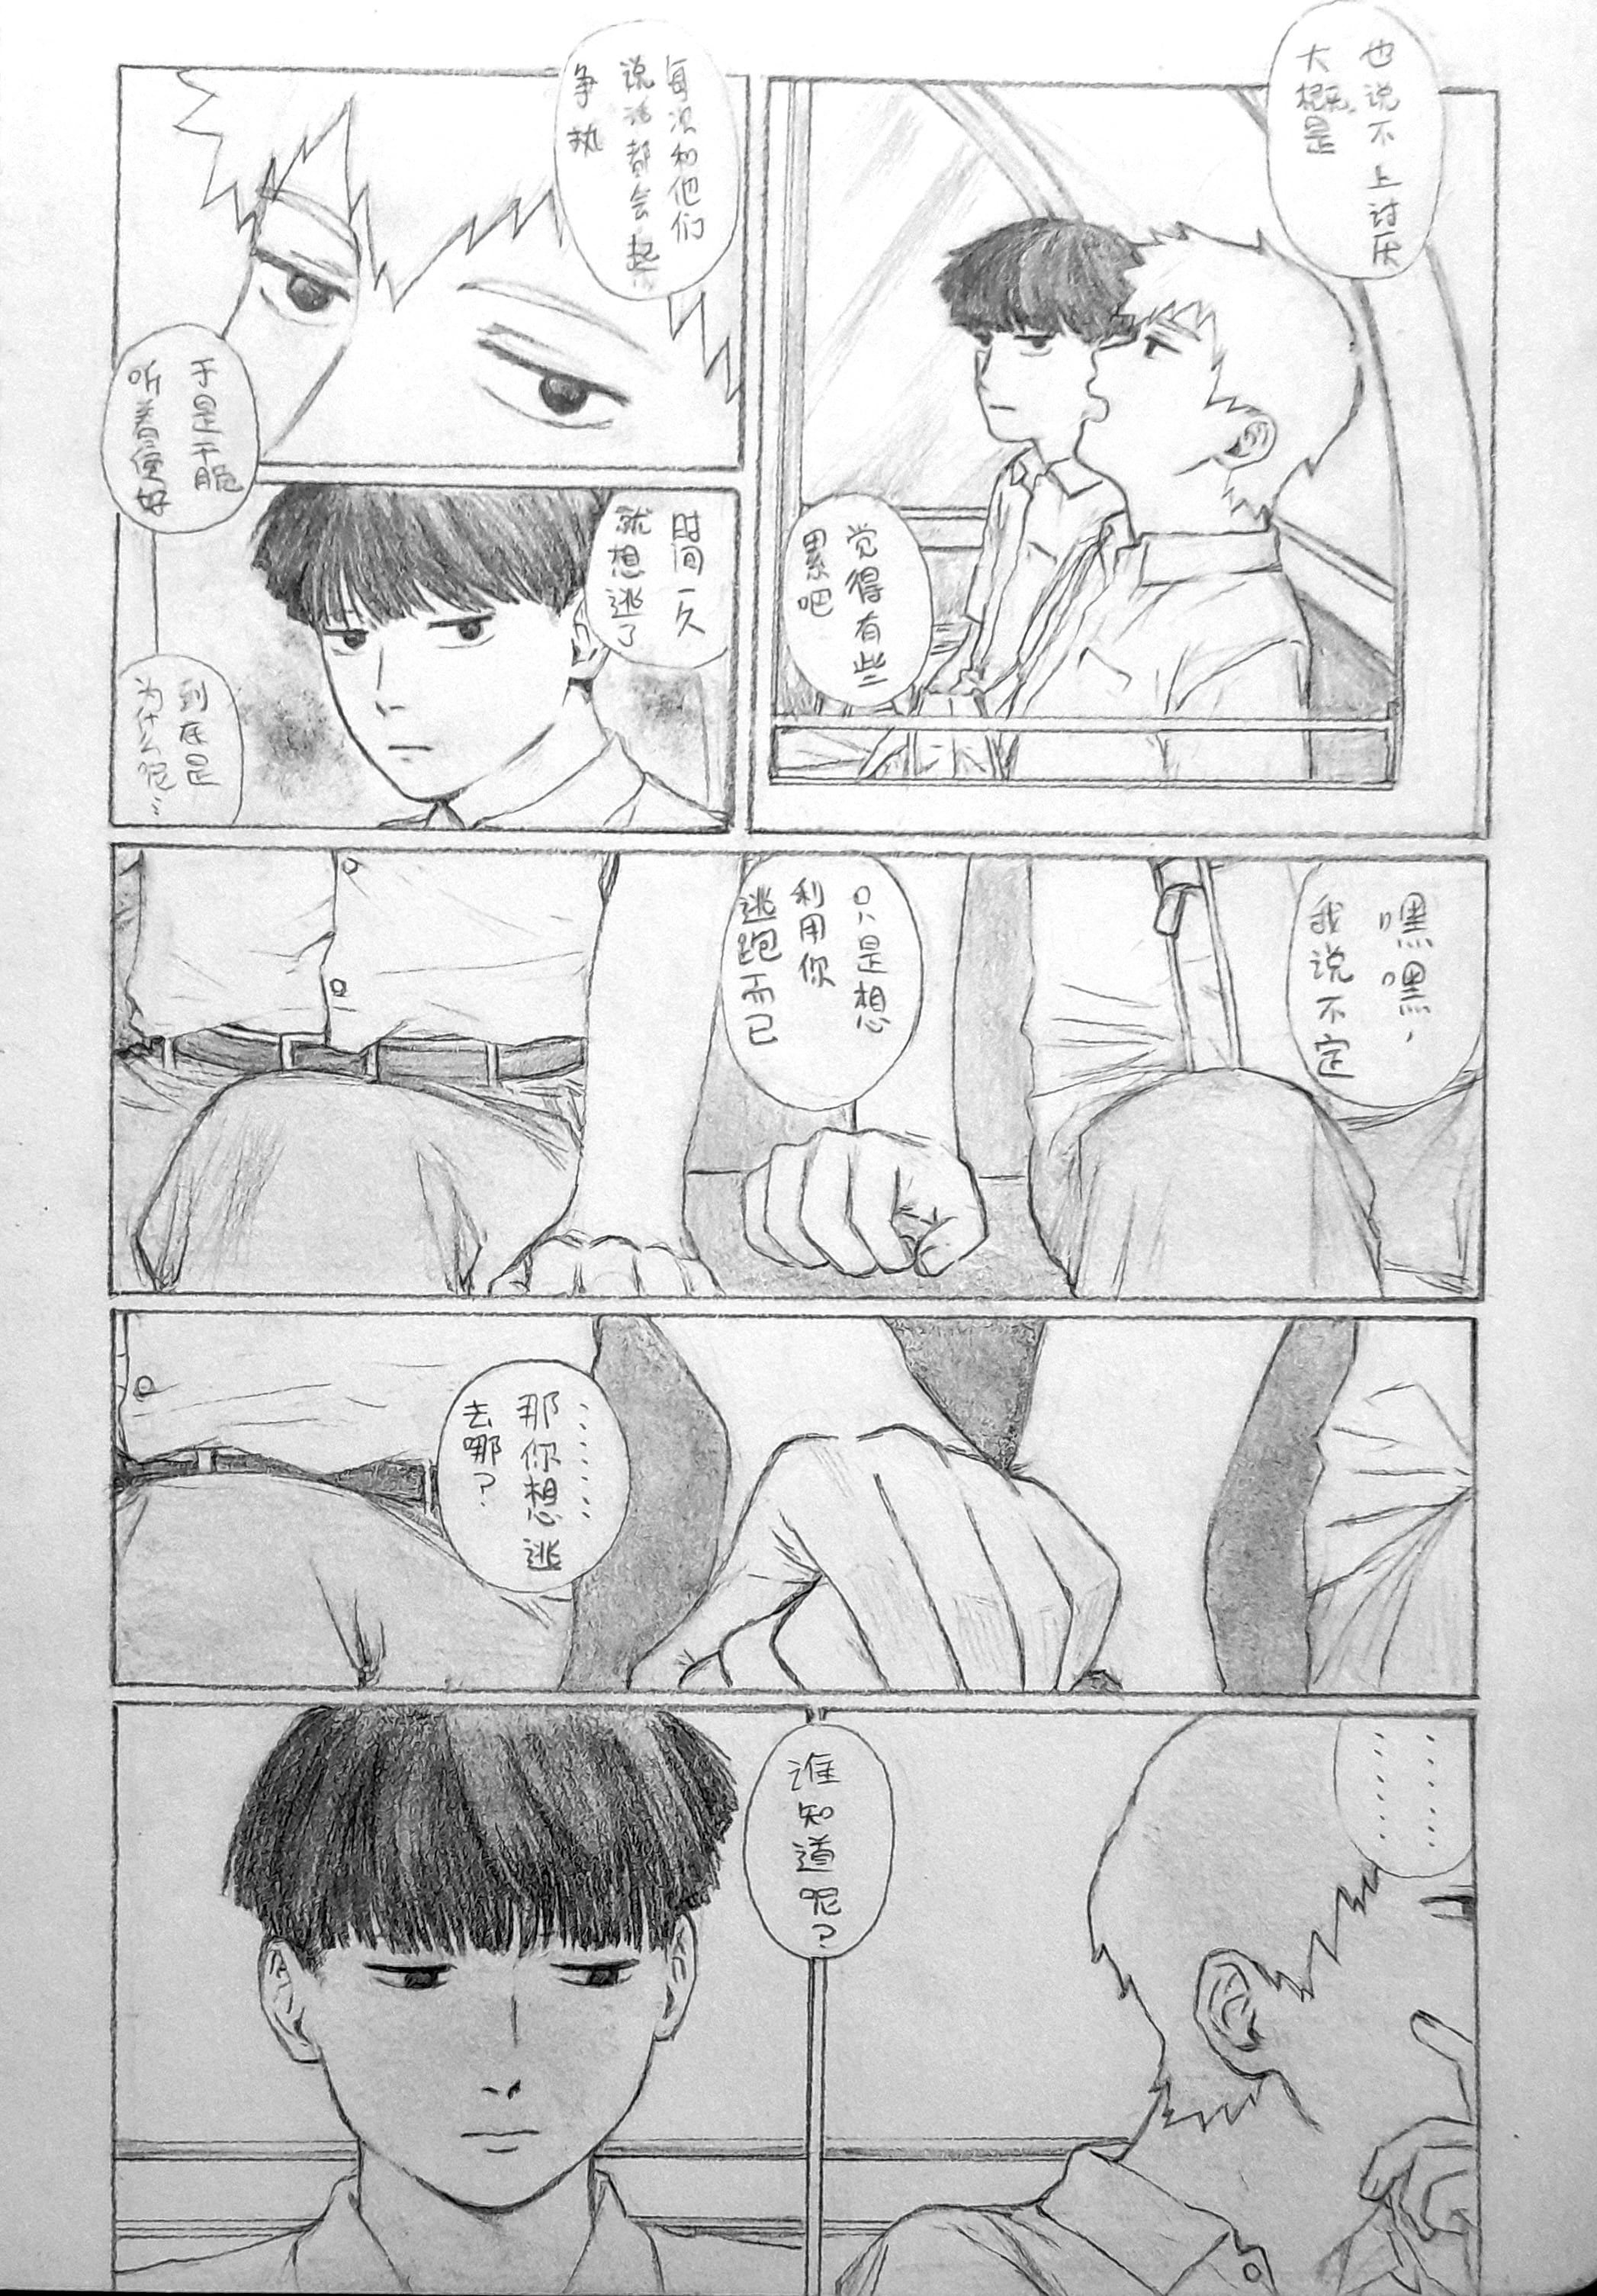 也说不上讨厌
大概是
觉得有些
累吧
每次和他们
说话都会起
争执
于是干脆
听着便好
时间一久
就想逃了
到底是
为什么呢…
嘿嘿，
我说不定
只是想
利用你
逃跑而已
…………
那你想逃
去哪？
…………
…………
谁知道呢？